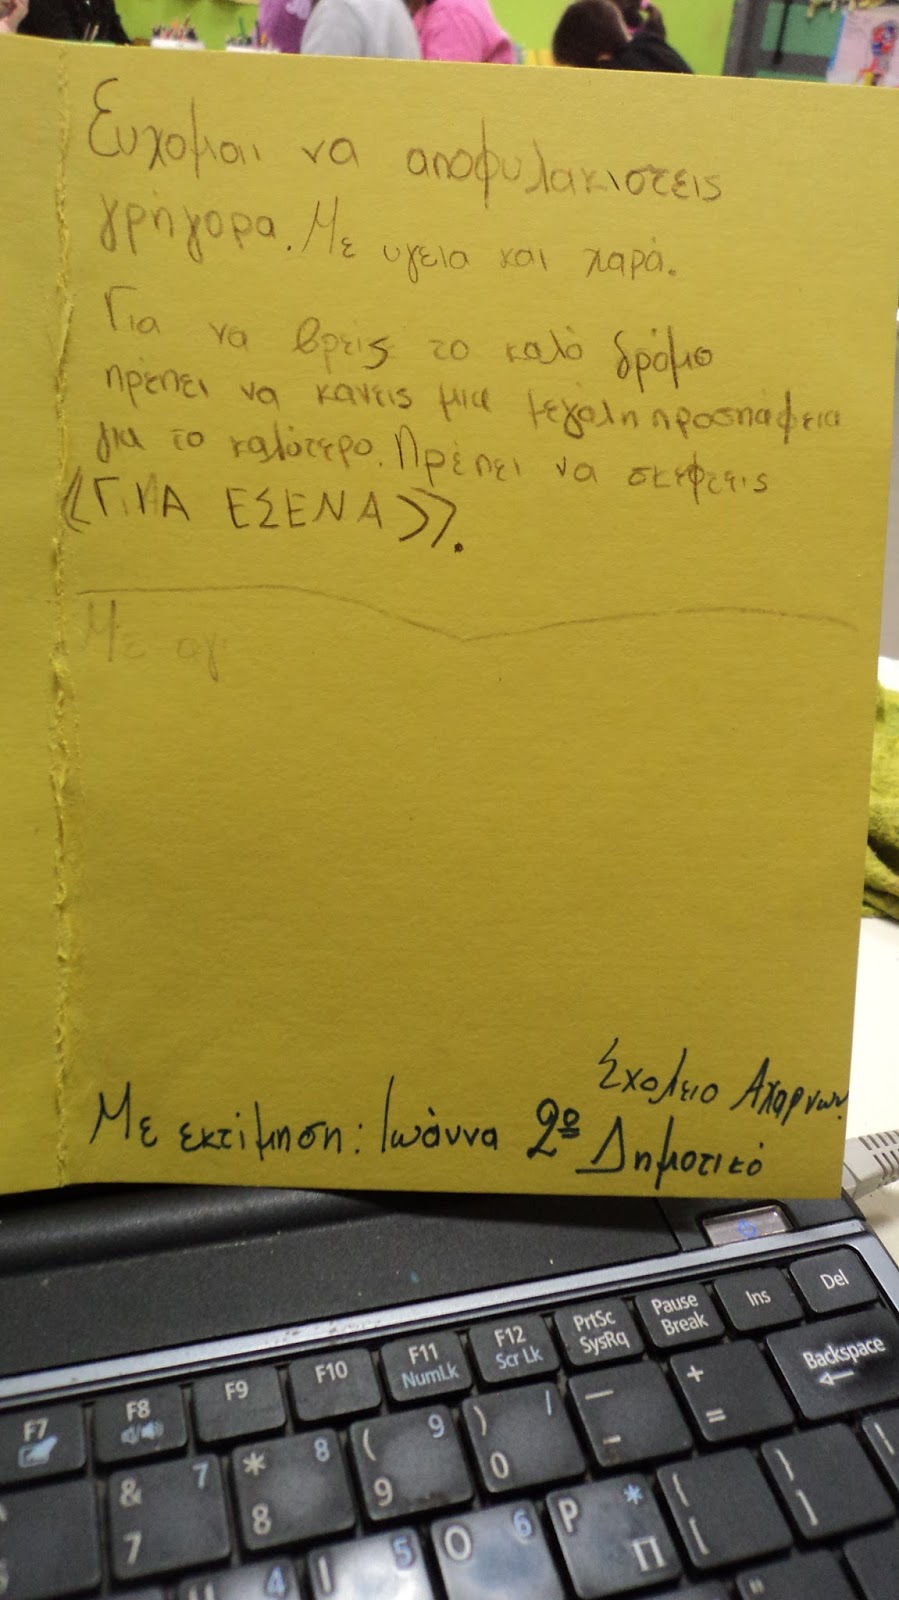 Ευχομαι να αποφυλακιστεις
γρήγορα. Με υγεια και χαρά.
Για να βρείς το καλό δρόμο
πρέπει να κανεις μια μεγαλη προσπάφεια
για το καλύτερο. Πρέπει να σκεφτεις
«ΓΙΑ ΕΣΕΝΑ».
Με αγ
Σχολειο Αχαρνων
Με εκτίμηση: Ιωάννα 2º Δημοτικό
Del
Ins
Pause Break
PrtSc SysRq
F12 Scr Lk
F11 NumLk
F10
F9
F8
F7
Backspace
+ =
— -
) / 0
( 9 9
* 8 8
& 7 7
{ [
} ]
P * Π
O 6
I 5
U 4
"